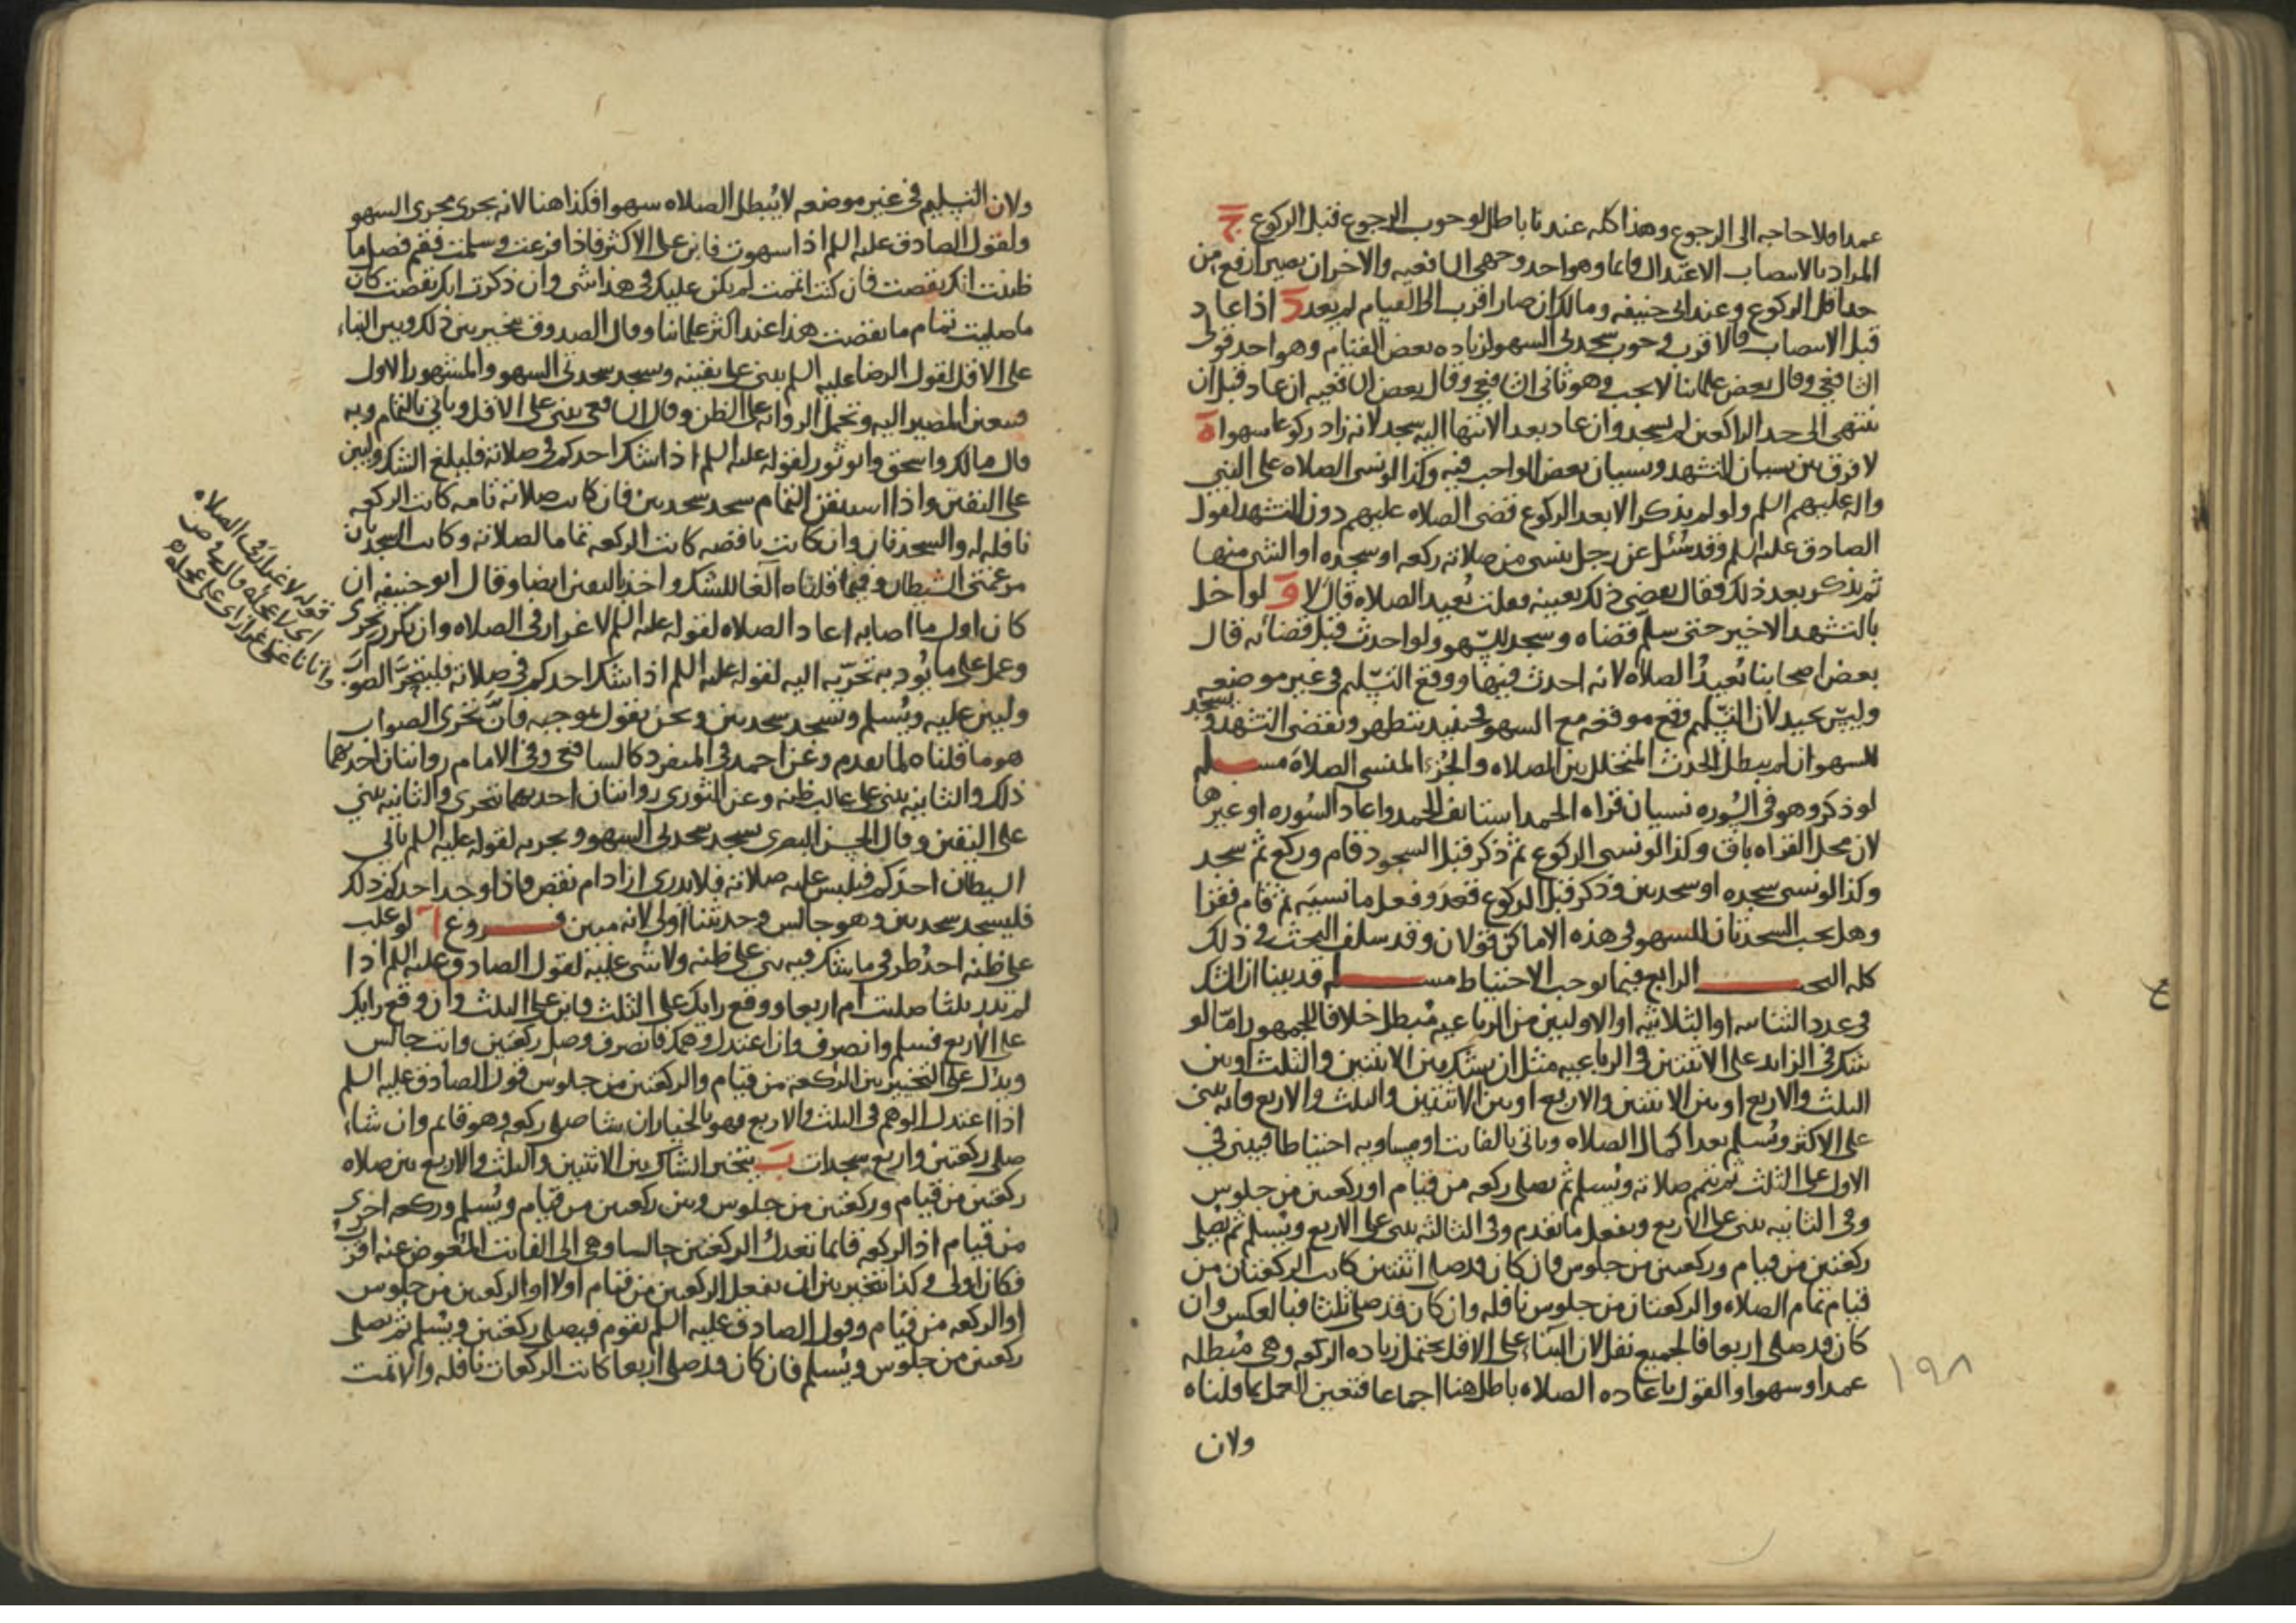 عمدا فلا حاجه الى الرجوع وهذا كله عندنا باطل لوجوب الرجوع قبل الركوع ج
المراد بالانتصاب الاعتدال قائما وهو احد وجهي الشافعيه والاخر ان يصير ارفع من
حد اقل الركوع وعند ابى حنيفه ومالك ان صار اقرب الى القيام لم يعد د اذا عاد
قبل الانتصاب فالاقرب وجوب سجدتى السهو لزياده بعض القيام وهو احد قولى
الشافعي وقال بعض علمائنا لا يجب وهو ثانى الشافعي وقال بعض الشافعيه ان عاد قبل ان
ينتهى الى حد الراكعين لم يسجد وان عاد بعد الانتهاء اليه سجد لانه زاد ركوعا سهوا ه
لا فرق بين نسيان التشهد ونسيان بعض الواجب فيه وكذا لو نسى الصلاه على النبي
واله عليهم السلم ولو لم يذكر الا بعد الركوع قضى الصلاه عليهم دون التشهد لقول
الصادق عليه السلم وقد سئل عن رجل ينسى من صلاته ركعه او سجده او الشى منها
ثم يذكر بعد ذلك فقال يقضى ذلك بعينه فقلت يعيد الصلاه قال لا و لو اخل
بالتشهد الاخير حتى سلم قضاه وسجد للسهو ولو احدث قبل قضائه قال
بعض اصحابنا يعيد الصلاه لانه احدث فيها ووقع التسليم فى غير موضعه
وليس بجيد لان التسليم وقع موقعه مع السهو فحينئذ يتطهر ويقضى التشهد ويسجد
للسهو ان لم يبطل الحدث المتخلل بين الصلاه والجزء المنسى الصلاة مسلم
لو ذكر وهو فى السوره نسيان قراه الحمد استانف الحمد واعاد السوره او غيرها
لان محل القراه باق وكذا لو نسى الركوع ثم ذكر قبل السجود قام وركع ثم سجد
وكذا لو نسى سجده او سجدتين وذكر قبل الركوع قعد وفعل ما نسيه ثم قام فقرا
وهل يجب السجدتان للسهو فى هذه الاماكن قولان وقد سلف البحث فى ذلك
كله البحث الرابع فيما يوجب الاحتياط مسلم قد بينا ان الشك
فى عدد الثنائيه او الثلاثيه او الاوليين من الرباعيه مبطل خلافا للجمهور امّا لو
شك فى الزايد على الاثنتين فى الرباعيه مثل ان يشك بين الاثنتين والثلث او بين
الثلث والاربع او بين الاثنتين والاربع او بين الاثنتين والثلث والاربع فانه يبنى
على الاكثر ويسلم بعد اكمال الصلاه وياتى بالفائت او مساويه احتياطا فيبنى فى
الاول على الثلث ثم يتمم صلاته ويسلم ثم يصلى ركعه من قيام او ركعتين من جلوس
وفى الثانيه يبنى على الاربع ويفعل ما تقدم وفى الثالثه يبنى على الاربع ويسلم ثم يصلى
ركعتين من قيام وركعتين من جلوس فان كان قد صلى اثنتين كانت الركعتان من
قيام تمام الصلاه والركعتان من جلوس نافله وان كان قد صلى ثلثا فبالعكس وان
كان قد صلى اربعا فالجميع نفل لان البناء على الاقل يحتمل زياده الركعه وهى مبطله
عمدا وسهوا والقول باعاده الصلاه باطل هنا اجماعا فتعين العمل بما قلناه
ولان
١٩٨
ولان التسليم فى غير موضعه لا يبطل الصلاه سهوا فكذا هنا لانه يجرى مجرى السهو
ولقول الصادق عليه السلم اذا سهوت فابن على الاكثر فاذا فرغت وسلمت فقم فصل ما
ظننت انك نقصت فان كنت اتممت لم يكن عليك فى هذا شى وان ذكرت انك نقصت كان
ما صليت تمام ما نقصت هذا عند اكثر علمائنا وقال الصدوق يتخير بين ذلك وبين البناء
على الاقل لقول الرضا عليه السلم يبنى على يقينه ويسجد سجدتى السهو والمشهور الاول
فتعين المصير اليه وتحمل الروايه على الظن وقال الشافعى يبنى على الاقل وياتى بالتمام وبه
قال مالك واسحق وابو ثور لقوله عليه السلم اذا شك احدكم فى صلاته فليلغ الشك وليبن
على اليقين واذا استيقن التمام سجد سجدتين فان كانت صلاته تامه كانت الركعه
نافله له والسجدتان وان كانت ناقصه كانت الركعه تماما لصلاته وكانت السجدتان
مرغمتى الشيطان وفيما قلناه الغا للشك واخذ باليقين ايضا وقال ابو حنيفه ان
كان اول ما اصابه اعاد الصلاه لقوله عليه السلم لا غرار فى الصلاه وان تكرر تحرى
وعمل على ما يؤديه تحرّيه اليه لقوله عليه السلم اذا شك احدكم فى صلاته فليتحرّ الصواب
وليبن عليه ويسلم ويسجد سجدتين ونحن نقول بموجبه فانّ تحرى الصواب
هو ما قلناه لما تقدم وعن احمد فى المنفرد كالشافعى وفى الامام روايتان احديهما
ذلك والثانيه يبنى على غالب ظنه وعن الثورى روايتان احديهما يتحرى والثانيه يبنى
على اليقين وقال الحسن البصرى يسجد سجدتى السهو ويجزيه لقوله عليه السلم ياتى
الشيطان احدكم فيلبس عليه صلاته فلا يدرى ازاد ام نقص فاذا وجد احدكم ذلك
فليسجد سجدتين وهو جالس وحديثنا اولى لانه مبين فروع ا لو غلب
على ظنه احد طرفى ما شك فيه بنى على ظنه ولا شى عليه لقول الصادق عليه السلم اذا
لم تدر ثلثا صليت ام اربعا ووقع رايك على الثلث فابن على الثلث وان وقع رايك
على الاربع فسلم وانصرف وان اعتدل وهمك فانصرف وصل ركعتين وانت جالس
ويدل على التخيير بين الركعه من قيام والركعتين من جلوس قول الصادق عليه السلم
اذا اعتدل الوهم فى الثلث والاربع فهو بالخيار ان شا صلى ركعه وهو قايم وان شاء
صلى ركعتين واربع سجدات ب يتخير الشاك بين الاثنتين والثلث والاربع بين صلاه
ركعتين من قيام وركعتين من جلوس وبين ركعتين من قيام ويسلم وركعه اخرى
من قيام اذ الركعه قائما تعدل الركعتين جالسا وهى الى الفائت المعوض عنه اقرب
فكان اولى وكذا يتخير بين ان يفعل الركعتين من قيام اولا او الركعتين من جلوس
او الركعه من قيام وقول الصادق عليه السلم يقوم فيصلى ركعتين ويسلم ثم يصلى
ركعتين من جلوس ويسلم فان كان قد صلى اربعا كانت الركعات نافله والا تمت
قوله لا غرار فى الصلاه